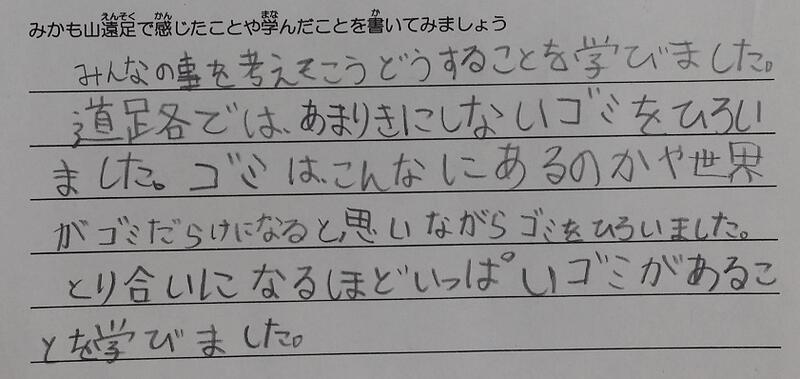 みかも山遠足で感じたことや学んだことを書いてみましょう
みんなの事を考えてこうどうすることを学びました。
道足各では、あまりきにしないゴミをひろい
ました。ゴミは、こんなにあるのかや世界
がゴミだらけになると思いながらゴミをひろいました。
とり合いになるほどいっぱいゴミがあるこ
とを学びました。